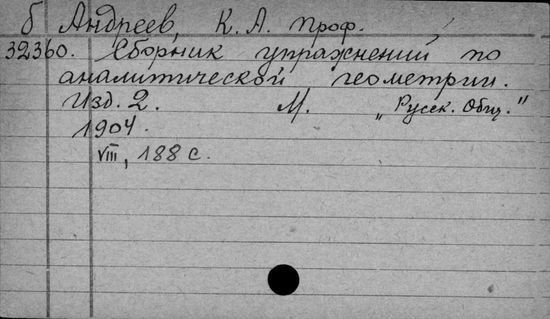 б Андреев, К. А. проф.
32360. Сборник упражнений по
аналитической геометрии.
Изд. 2. М. „Русск. Общ."
1904.
VIII, 188 с.